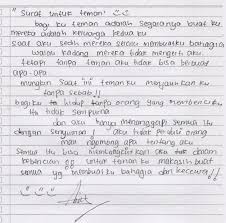 " Surat untuk teman "
bagi ku teman adalah segalanya buat ku
mereka adalah keluarga kedua ku
saat aku sedih mereka selalu membuatku bahagia
walau kadang mereka tidak mengerti aku.
tetapi tanpa teman aku tidak bisa berbuat
apa-apa
mungkin saat ini teman ku menjauhkan ku
tanpa sebab!!
bagi ku hidup tanpa orang yang membenci ku
itu tidak sempurna
dan aku hanya menanggap semua itu
dengan senyuman! aku tidak peduli orang
mau ngomong apa tentang aku
semua itu bisa membangkitkan aku dalam
kebencian untuk teman ku makasih buat
semua yg membuat ku bahagia dan kecewa!!